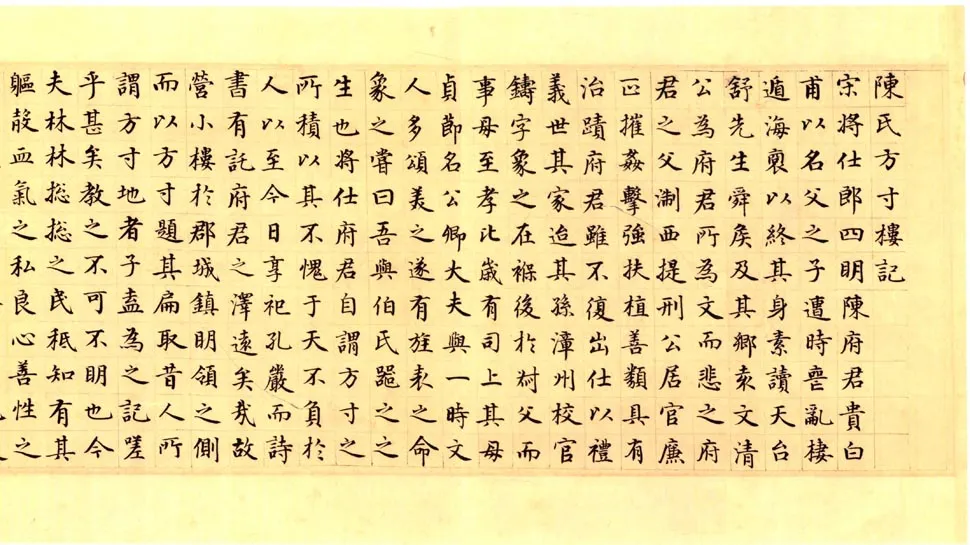 陳氏方寸樓記
宋將仕郎四明陳府君貴白
甫以名父之子遭時喪亂棲
遁海裔以終其身素讀天台
舒先生舜矦及其鄉袁文清
公為府君所為文而悲之府
君之父淛西提刑公居官廉
正摧姦擊強扶植善類具有
治蹟府君雖不復出仕以禮
義世其家迨其孫漳州校官
鑄字象之在褓後於叔父而
事母至孝比歲有司上其母
貞節名公卿大夫與一時文
人多頌美之遂有旌表之命
象之嘗曰吾與伯氏噐之之
生也將仕府君自謂方寸之
所積以其不愧于天不負於
人以至今日享祀孔嚴而詩
書有託府君之澤遠矣哉故
營小樓於郡城鎮明領之側
而以方寸題其扁取昔人所
謂方寸地者子盍為之記嗟
乎甚矣教之不可不明也今
夫林林揔揔之民秪知有其
軀殻血氣之私良心善性之